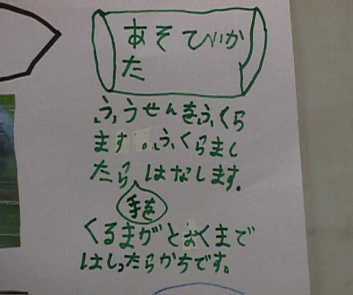 あそびかた
ふうせんをふくら
ます。ふくらまし
たら、はなします。
手を
くるまがとおくまで
はしったらかちです。